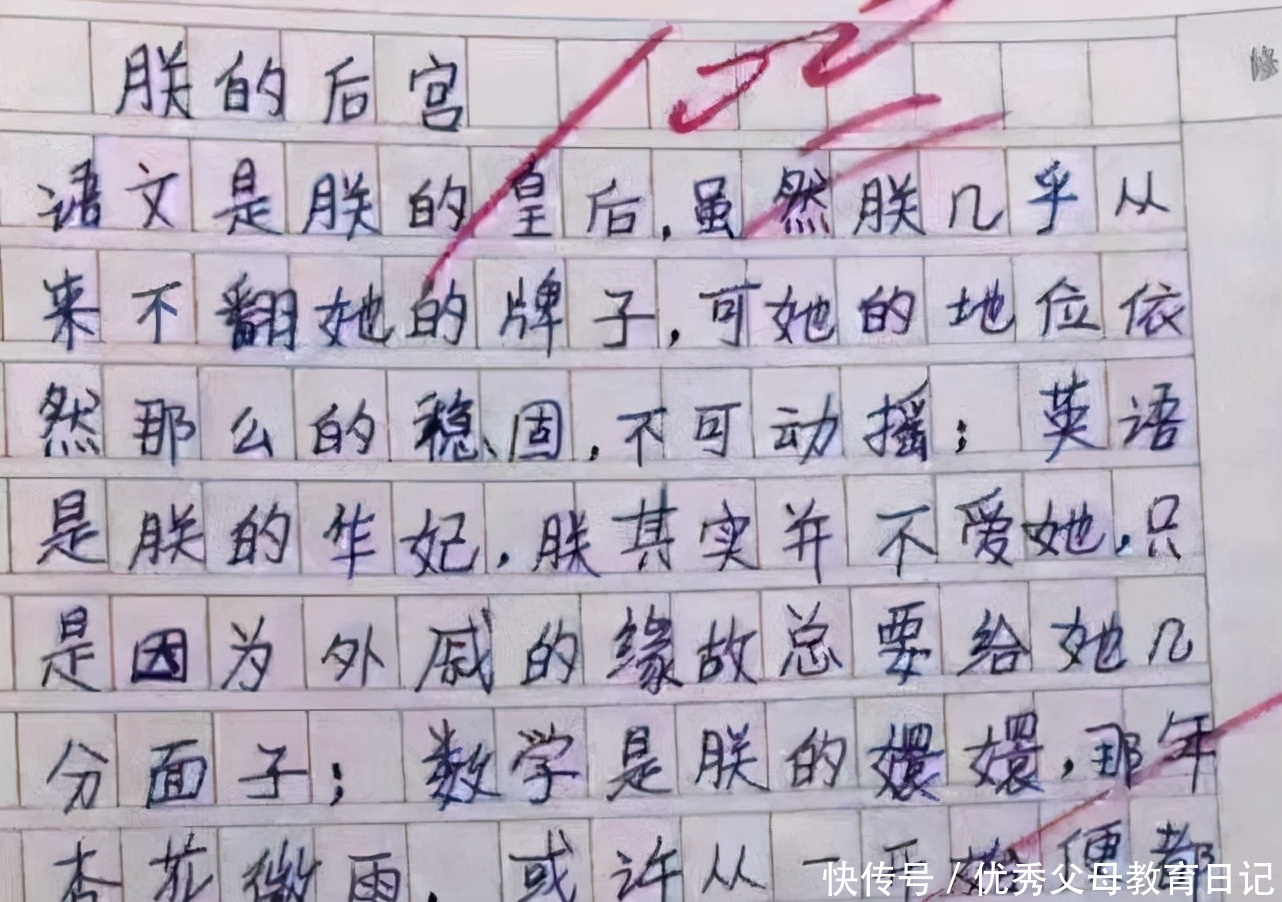 朕的后宫
语文是朕的皇后,虽然朕几乎从
来不翻她的牌子,可她的地位依
然那么的稳固,不可动摇;英语
是朕的华妃,朕其实并不爱她,只
是因为外戚的缘故总要给她几
分面子;数学是朕的嬛嬛,那年
杏花微雨,或许从一开始便都
快传号/优秀父母教育日记